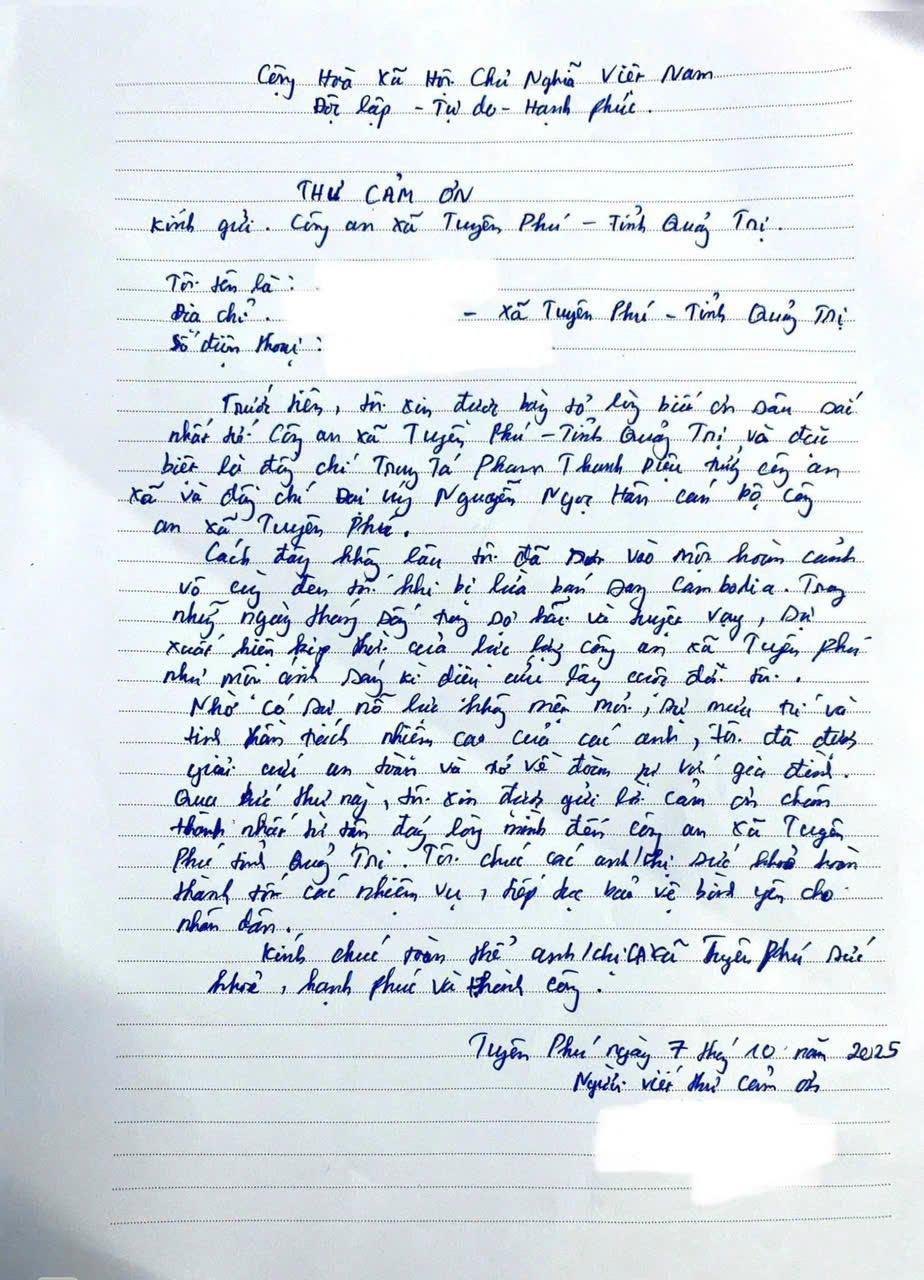 Cộng Hoà Xã Hội Chủ Nghĩa Việt Nam
Độc lập - Tự do - Hạnh phúc.
THƯ CẢM ƠN
Kính gửi. Công an xã Tuyên Phú - Tỉnh Quảng Trị.
Tôi tên là :
Địa chỉ . - xã Tuyên Phú - Tỉnh Quảng Trị
Số điện thoại :
Trước tiên, tôi xin được bày tỏ lòng biết ơn sâu sắc
nhất tới Công an xã Tuyên Phú - Tỉnh Quảng Trị, và đặc
biệt là đồng chí Trung Tá Phạm Thanh Diệu trưởng công an
xã và đồng chí Đại úy Nguyễn Ngọc Hân cán bộ công
an xã Tuyên Phú.
Cách đây không lâu tôi đã rơi vào một hoàn cảnh
vô cùng đen tối khi bị lừa bán sang Cambodia. Trong
những ngày tháng sống trong sợ hãi và tuyệt vọng, sự
xuất hiện kịp thời của lực lượng công an xã Tuyên Phú
như một ánh sáng kì diệu cứu lấy cuộc đời tôi.
Nhờ có sự nỗ lực không mệt mỏi, sự mưu trí và
tinh thần trách nhiệm cao của các anh, tôi đã được
giải cứu an toàn và trở về đoàn tụ với gia đình.
Qua bức thư này, tôi xin được gửi lời cảm ơn chân
thành nhất từ tận đáy lòng mình đến công an xã Tuyên
Phú tỉnh Quảng Trị. Tôi chúc các anh/chị sức khoẻ hoàn
thành tốt các nhiệm vụ, tiếp tục bảo vệ bình yên cho
nhân dân.
Kính chúc toàn thể anh/chị CA xã Tuyên Phú sức
khoẻ, hạnh phúc và thành công.
Tuyên Phú ngày 7 tháng 10 năm 2025
Người viết thư cảm ơn